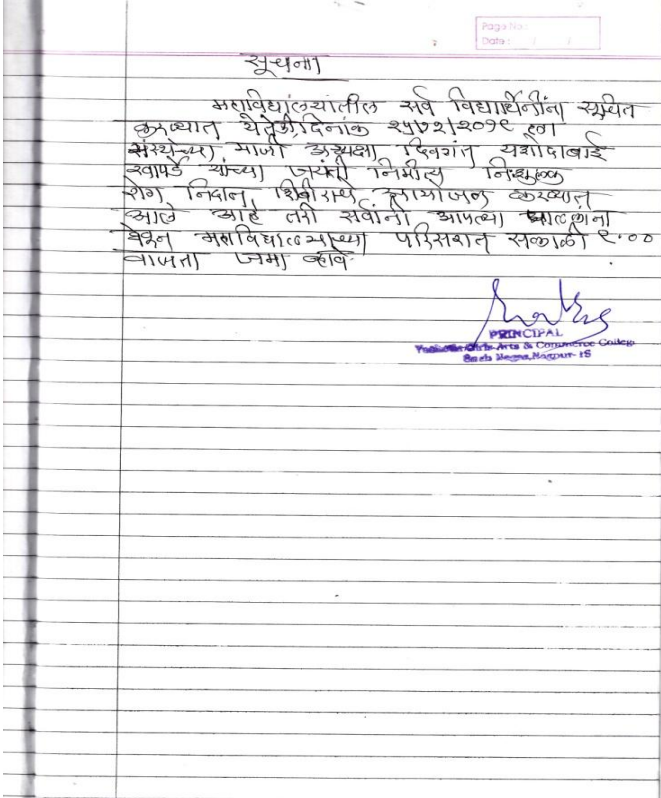 Page No:
Date: / /
सूचना
महाविद्यालयातील सर्व विद्यार्थिनींना सूचित
करण्यात येते की, दिनांक २५/१२/२०१९ ला
संस्थेच्या माजी अध्यक्षा दिवगंत यशोदाबाई
खापर्डे यांच्या जयंती निमीत्य निःशुल्क
रोग निदान शिबीराचे आयोजन करण्यात
आले आहे तरी सर्वांनी आपल्या पाल्यांना
घेवून महाविद्यालयाच्या परिसरात सकाळी ९.००
वाजता जमा व्हावे.
PRINCIPAL
Girls Arts & Commerce College
Nagpur-15